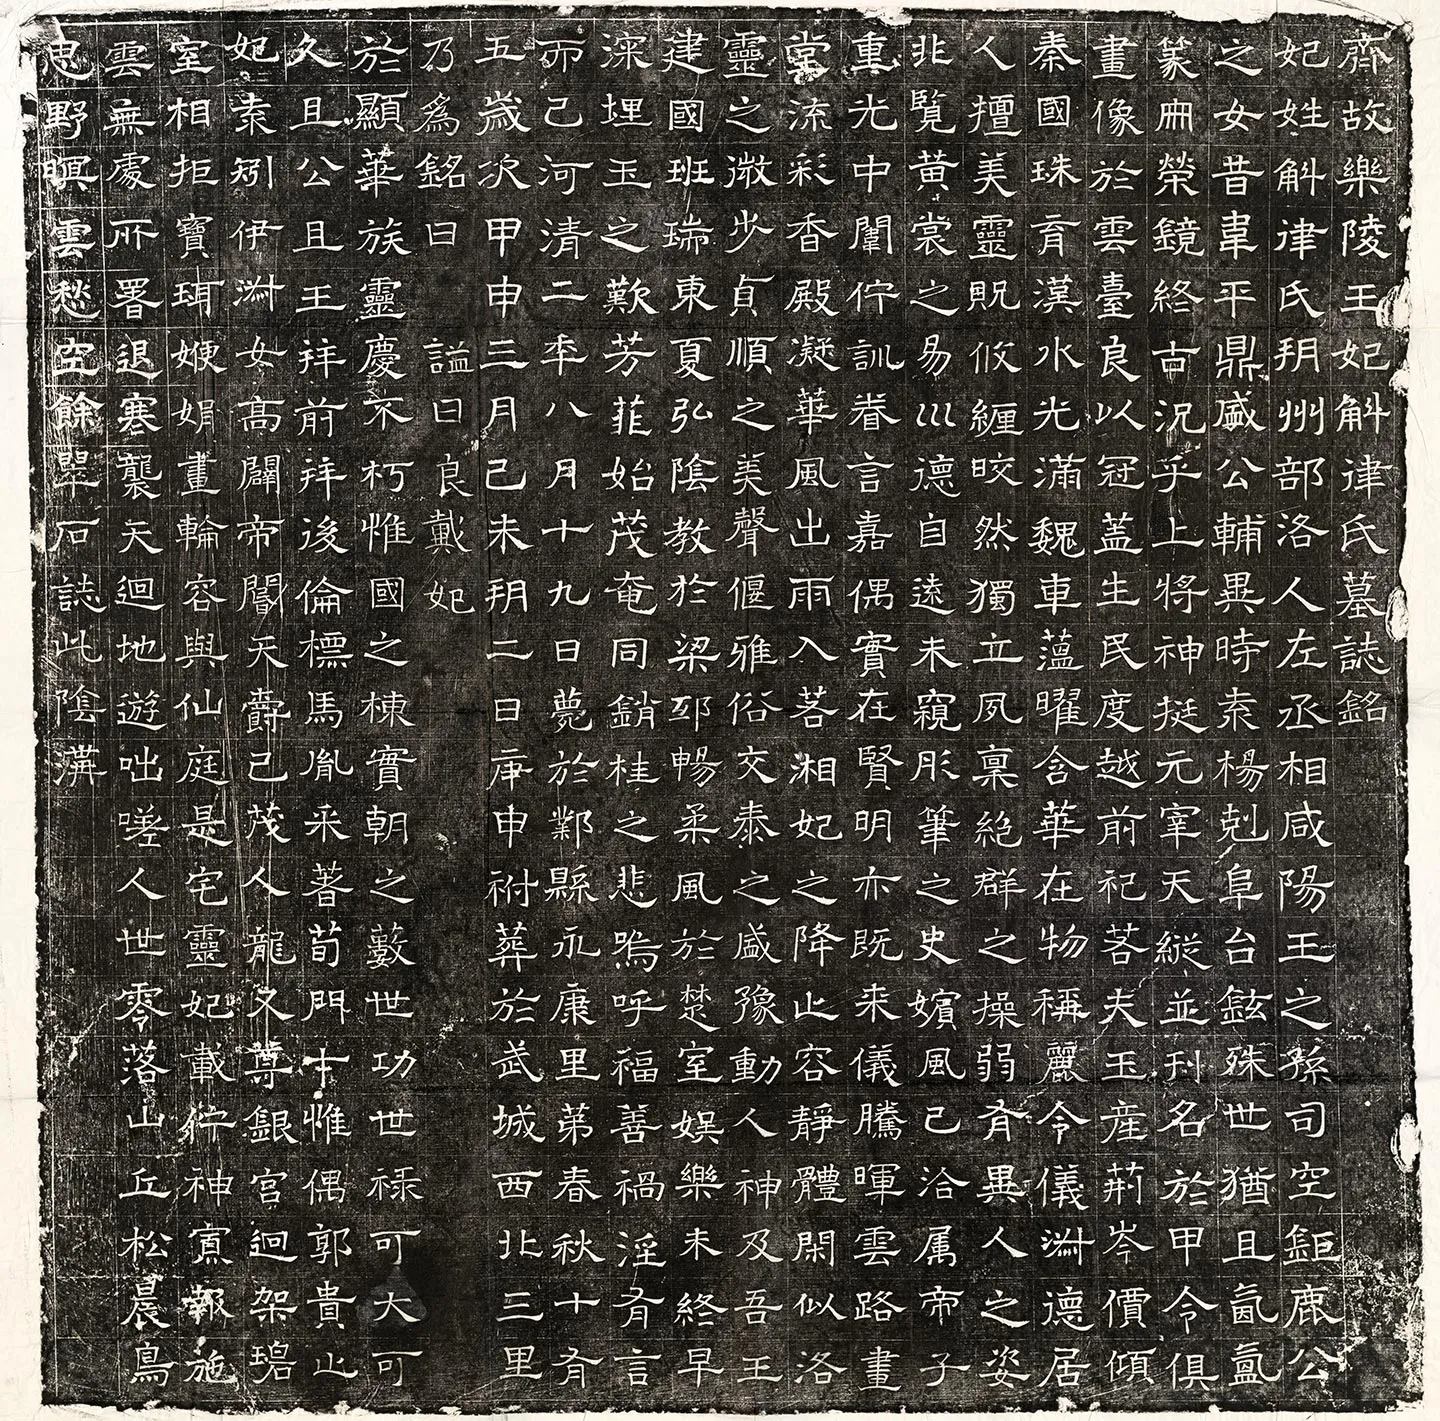 齊故樂陵王妃斛律氏墓誌銘
妃姓斛律氏朔州部洛人左丞相咸陽王之孫司空鉅鹿公
之女昔韋平鼎盛公輔異時袁楊剋阜台鉉殊世猶且氤氳
篆冊榮鏡終古況乎上將神挺元宰天縱並刊名於甲令俱
畫像於雲臺良以冠蓋生民度越前祀若夫玉產荊岑價傾
秦國珠育漢水光滿魏車蘊曜含華在物稱麗令儀淑德居
人擅美靈貺攸纏皎然獨立夙稟絕群之操弱有異人之姿
北覧黃裳之易巛德自遠未窺彤筆之史嬪風已洽属帝子
重光中闈佇訓眷言嘉偶實在賢明亦既来儀騰暉雲路畫
堂流彩香殿凝華風出雨入若湘妃之降止容靜體閑似洛
靈之微步貞順之美聲偃雅俗交泰之盛豫動人神及吾王
建國班瑞東夏弘陰教於梁邳暢柔風於楚室娛樂未終早
深埋玉之歎芳菲始茂奄同銷桂之悲嗚呼福善禍淫有言
而已河清二年八月十九日薨於鄴縣永康里第春秋十有
五歲次甲申三月己未朔二日庚申祔葬於武城西北三里
乃為銘曰 謚曰良戴妃
於顯華族靈慶不朽惟國之棟實朝之藪世功世祿可大可
久且公且王拜前拜後倫標馬胤采著荀門十惟偶郭貴止
妃袁矧伊淑女高闢帝閽天爵已茂人龍又尊銀宮迥架碧
室相拒寶珥娟畫輪容與仙庭是宅靈妃載佇神寘報施
雲無處所署退寒襲天迴地遊咄嗟人世零落山丘松晨鳥
思野暝雲愁空餘翠石誌此陰溝